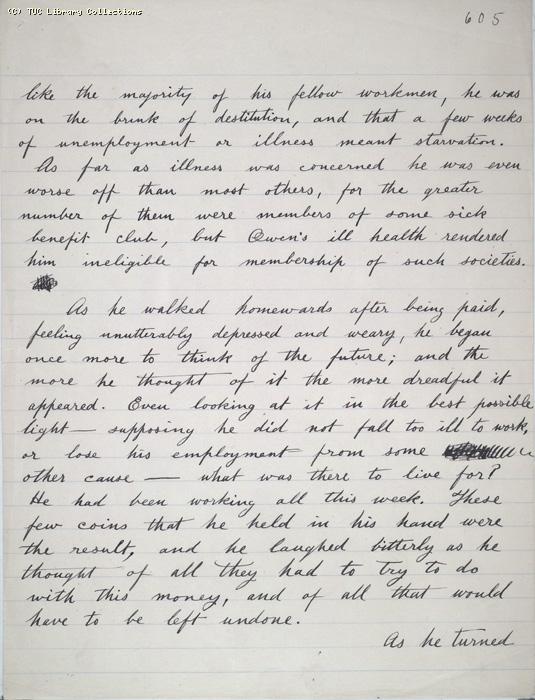 (C) TUC Library Collections
605
like the majority of his fellow workmen, he was
on the brink of destitution, and that a few weeks
of unemployment or illness meant starvation.
As far as illness was concerned he was even
worse off than most others, for the greater
number of them were members of some sick
benefit club, but Owen's ill health rendered
him ineligible for membership of such societies.
As he walked homewards after being paid,
feeling unutterably depressed and weary, he began
once more to think of the future; and the
more he thought of it the more dreadful it
appeared. Even looking at it in the best possible
light — supposing he did not fall too ill to work,
or lose his employment from some
other cause — what was there to live for?
He had been working all this week. These
few coins that he held in his hand were
the result, and he laughed bitterly as he
thought of all they had to try to do
with this money, and of all that would
have to be left undone.
As he turned